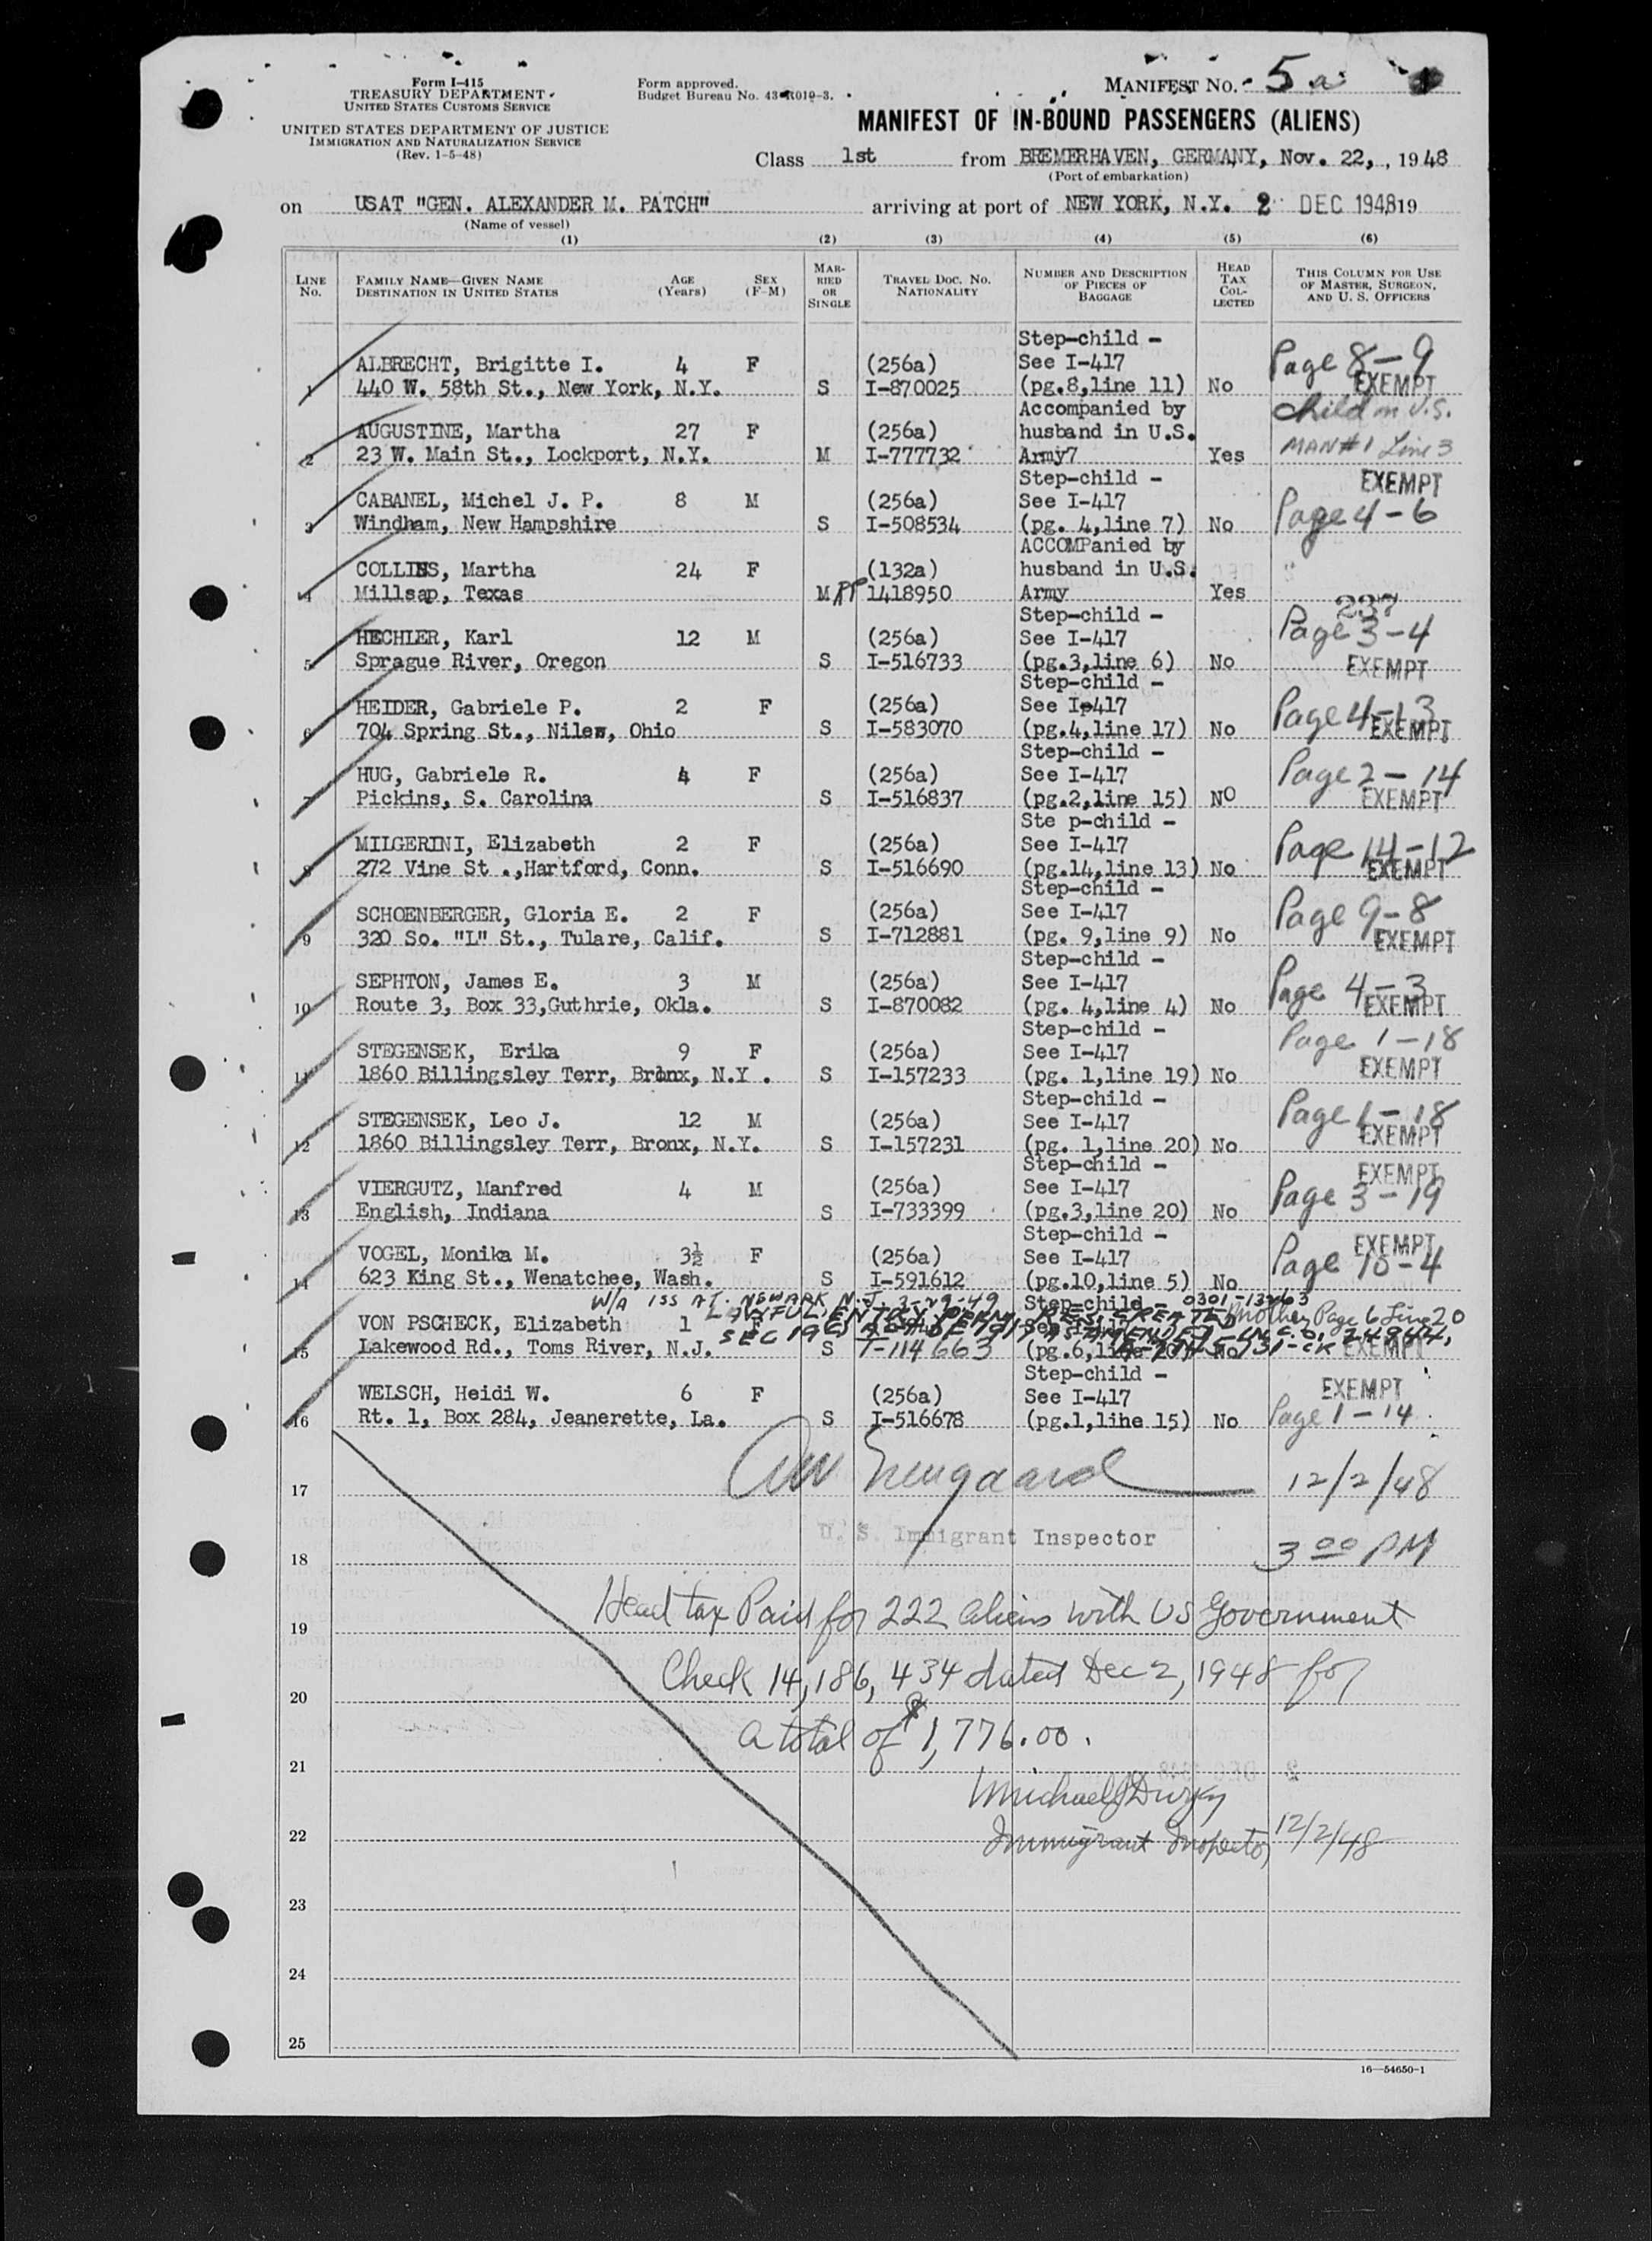 Form I-415
TREASURY DEPARTMENT
UNITED STATES CUSTOMS SERVICE
UNITED STATES DEPARTMENT OF JUSTICE
IMMIGRATION AND NATURALIZATION SERVICE
(Rev. 1-5-48)
Form approved.
Budget Bureau No. 43-R019-3.
MANIFEST NO. 5a
MANIFEST OF IN-BOUND PASSENGERS (ALIENS)
Class 1st from BREMERHAVEN, GERMANY, Nov. 22, , 1948
(Port of embarkation)
on USAT "GEN. ALEXANDER M. PATCH" arriving at port of NEW YORK, N.Y. 2 DEC 1948 19
(Name of vessel)
(1) (2) (3) (4) (5) (6)
LINE No. FAMILY NAME—GIVEN NAME DESTINATION IN UNITED STATES AGE (Years) SEX (F-M) MARRIED OR SINGLE TRAVEL DOC. NO. NATIONALITY NUMBER AND DESCRIPTION OF PIECES OF BAGGAGE HEAD TAX COLLECTED THIS COLUMN FOR USE OF MASTER, SURGEON, AND U. S. OFFICERS
Step-child -
ALBRECHT, Brigitte I. 4 F (256a) See I-417 Page 8-9
1 440 W. 58th St., New York, N.Y. S I-870025 (pg.8,line 11) No EXEMPT
Accompanied by child in U.S.
AUGUSTINE, Martha 27 F (256a) husband in U.S.
2 23 W. Main St., Lockport, N.Y. M I-777732 Army7 Yes MAN#1 Line 3
Step-child - EXEMPT
CABANEL, Michel J. P. 8 M (256a) See I-417
3 Windham, New Hampshire S I-508534 (pg. 4,line 7) No Page 4-6
ACCOMPanied by
COLLINS, Martha 24 F (132a) husband in U.S.
4 Millsap, Texas M PP 1418950 Army Yes
Step-child - 237
HECHLER, Karl 12 M (256a) See I-417 Page 3-4
5 Sprague River, Oregon S I-516733 (pg.3,line 6) No EXEMPT
Step-child -
HEIDER, Gabriele P. 2 F (256a) See Ip417 Page 4-13
6 704 Spring St., Niles, Ohio S I-583070 (pg.4,line 17) No EXEMPT
Step-child -
HUG, Gabriele R. 4 F (256a) See I-417 Page 2-14
7 Pickins, S. Carolina S I-516837 (pg.2,line 15) NO EXEMPT
Ste p-child -
MILGERINI, Elizabeth 2 F (256a) See I-417 Page 14-12
8 272 Vine St .,Hartford, Conn. S I-516690 (pg.14,line 13) No EXEMPT
Step-child -
SCHOENBERGER, Gloria E. 2 F (256a) See I-417 Page 9-8
9 320 So. "L" St., Tulare, Calif. S I-712881 (pg. 9,line 9) No EXEMPT
Step-child -
SEPHTON, James E. 3 M (256a) See I-417 Page 4-3
10 Route 3, Box 33,Guthrie, Okla. S I-870082 (pg. 4,line 4) No EXEMPT
Step-child - Page 1-18
STEGENSEK, Erika 9 F (256a) See I-417
11 1860 Billingsley Terr, Bronx, N.Y . S I-157233 (pg. 1,line 19) No EXEMPT
Step-child -
STEGENSEK, Leo J. 12 M (256a) See I-417 Page 1-18
12 1860 Billingsley Terr, Bronx, N.Y. S I-157231 (pg. 1,line 20) No EXEMPT
Step-child - EXEMPT
VIERGUTZ, Manfred 4 M (256a) See I-417 Page 3-19
13 English, Indiana S I-733399 (pg.3,line 20) No
Step-child -
VOGEL, Monika M. 3½ F (256a) See I-417 EXEMPT
14 623 King St., Wenatchee, Wash. S I-591612 (pg.10,line 5) No Page 10-4
W/A ISS AT. NEWARK N.J. 3-29-49 Step-child - 0301-13263
LAWFUL ENTRY PERM. RES. CREATED Mother Page 6 Line 20
VON PSCHECK, Elizabeth 1 F
15 Lakewood Rd., Toms River, N.J. S T-114663 (pg.6, No EXEMPT
Step-child -
WELSCH, Heidi W. 6 F (256a) See I-417 EXEMPT
16 Rt. 1, Box 284, Jeanerette, La. S I-516678 (pg.1,line 15) No Page 1-14
17 12/2/48
U. S. Immigrant Inspector
18 3 00 PM
19 Head tax Paid for 222 aliens with US Government
20 Check 14,186,434 dated Dec 2, 1948 for
21 a total of $1,776.00.
Michael
22 Immigrant Inspector 12/2/48
23
24
25
16—54650-1